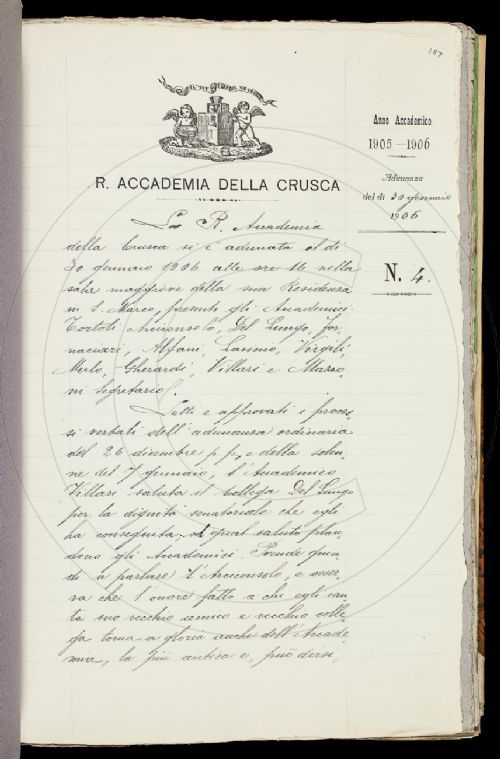 187
R. ACCADEMIA DELLA CRUSCA
Anno Accademico
1905-1906
Adunanza
del dì 30 gennaio
1906
N. 4.
La R. Accademia
della Crusca si è adunata il dì
30 gennaio 1906 alle ore 16 nella
sala maggiore della sua Residenza
in S. Marco, presenti gli Accademici
Tortoli Arciconsolo, Del Lungo, For-
naciari, Alfani, Virgili,
Merlo, Gherardi, Villari e Mazzo-
ni Segretario.
Letti e approvati i proces-
si verbali dell'adunanza ordinaria
del 26 dicembre p. p, e della solen-
ne del 7 gennaio, l'Accademico
Villari saluta il collega Del Lungo
per la dignità senatoriale che egli
ha conseguita; al qual saluto plau-
dono gli Accademici. Prende quin-
di a parlare l'Arciconsolo, e osser-
va che l'onore fatto a chi egli van-
ta suo vecchio amico e vecchio colle-
ga torna a gloria anche dell'Accade-
mia, la più antica e, può dirsi,